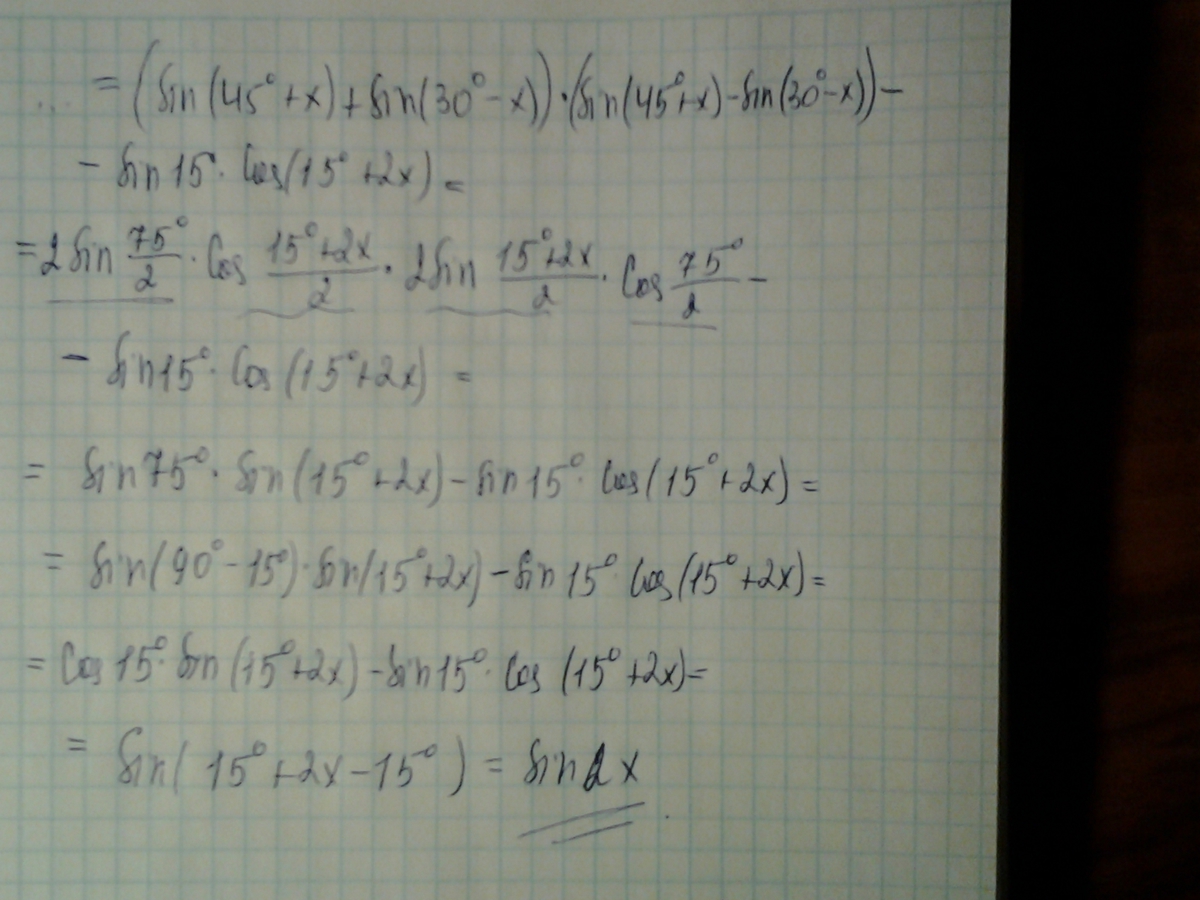 ... = (sin(45°+x)+sin(30°-x))·(sin(45°+x)-sin(30°-x))-
- sin15°·cos(15°+2x)=
=2sin 75°/2 · cos (15°+2x)/2 · 2sin (15°+2x)/2 · cos 75°/2 -
- sin15°·cos(15°+2x) =
= sin75°·sin(15°+2x)-sin15°·cos(15°+2x)=
= sin(90°-15°)·sin(15°+2x)-sin15°cos(15°+2x)=
= cos15°·sin(15°+2x)-sin15°·cos(15°+2x)=
= sin(15°+2x-15°) = sin2x